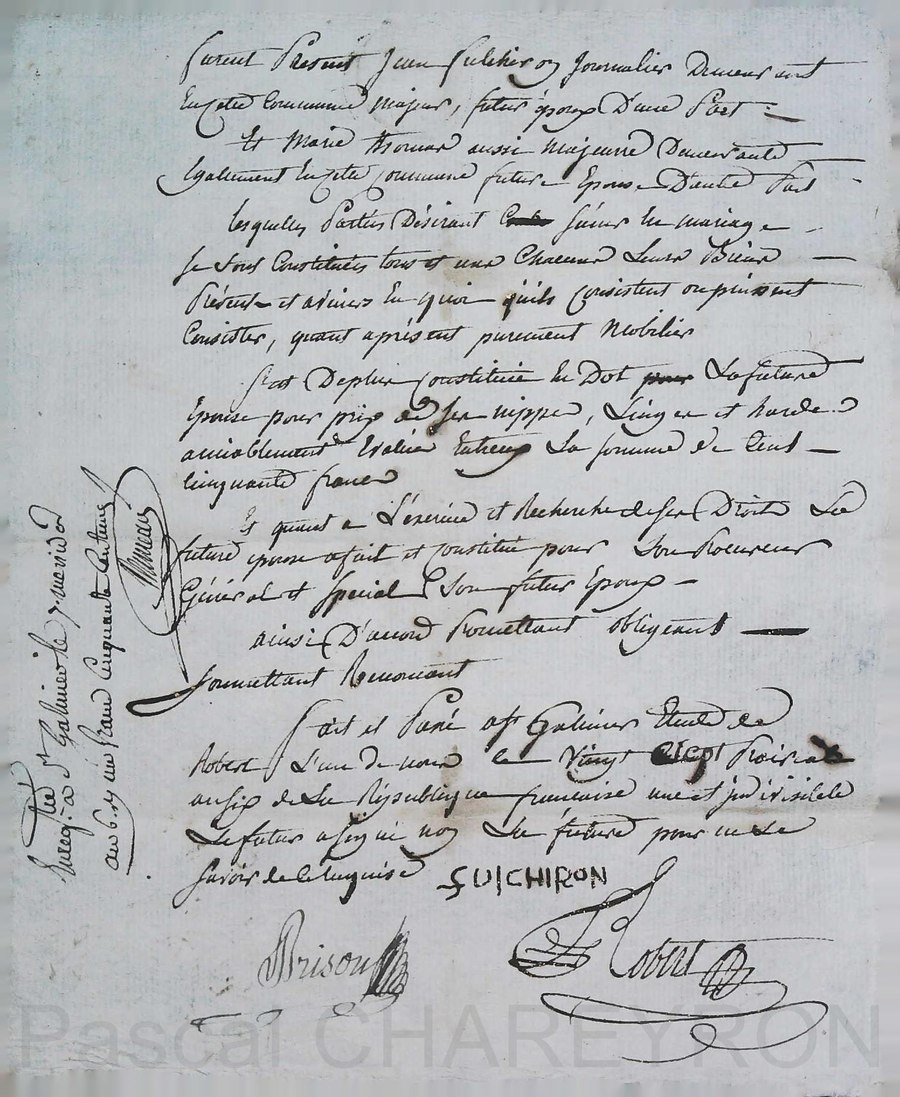 furent Présents Jean fulchiron Journalier Demeurant
En cette Commune Majeur, futur époux D'une Part
Et Marie thomas aussi Majeure Demeurante
Egalement En cette Commune future Epouse D'autre Part
lesquelles Parties Désirant s'unir En mariage
se sont Constitués tous et une Chacune Leurs Biens
Présents et avenirs En quoi qu'ils Consistent ou puissent
Consister, quant aprésent purement Mobilier
s'est Deplus Constituée En Dot pour La future
Epouse pour prix de ses nippes, Linges et hardes
amiablement Evalués Entreux La somme de Cent
Cinquante francs
Et quant a L'exercice et Recherche de ses Droits La
future epouse a fait et constitué pour Son Procureur
Général et Spécial Son futur Epoux
ainsi D'accord Promettant obligeant
soumettant Renonceant
fait et Passé a St Galmier Etude de
Robert L'un de nous le Vingt Prairial
an six de La République française une et indivisible
Le futur a signé non La future pour ne Le
savoir de ce Enquise
FULCHIRON
Brison
Robert
Enregtré à St Galmier le 7 messidor
an 6. rçu un franc Cinquante Centimes
Pascal CHAREYRON